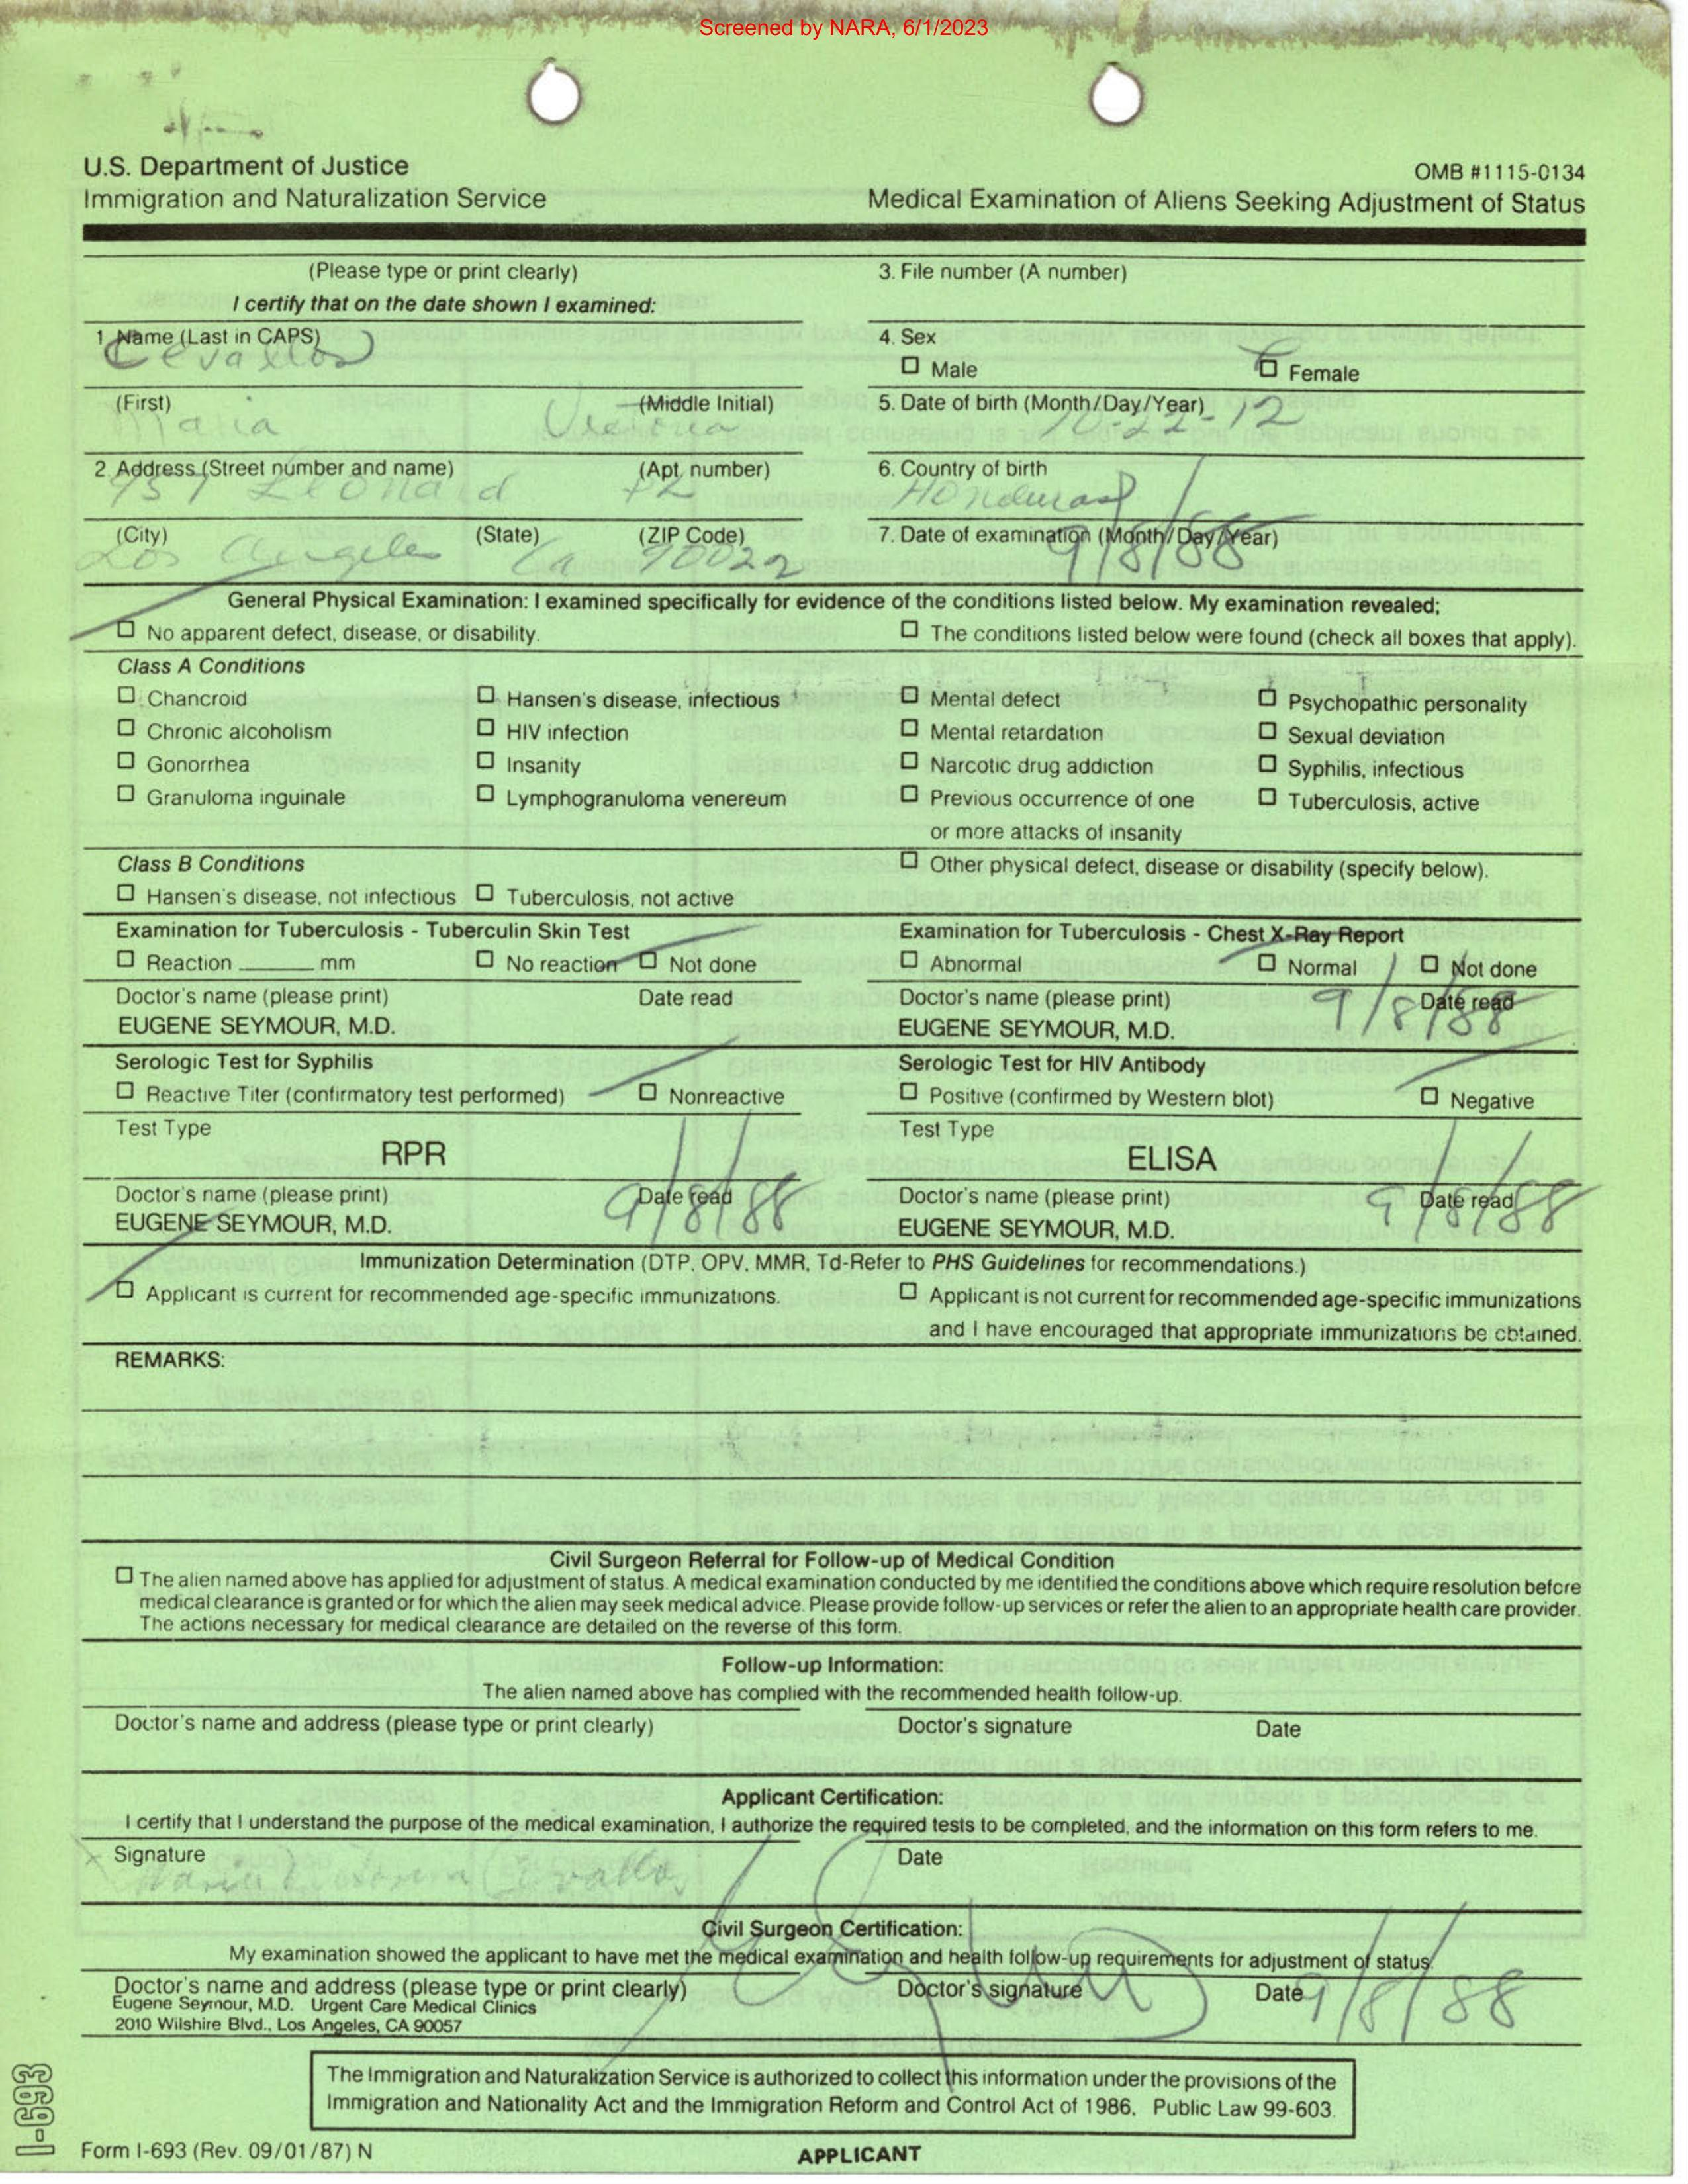 Screened by NARA, 6/1/2023
U.S. Department of Justice
Immigration and Naturalization Service
OMB #1115-0134
Medical Examination of Aliens Seeking Adjustment of Status
(Please type or print clearly)
I certify that on the date shown I examined:
3. File number (A number)
1. Name (Last in CAPS)
Cevallos
4. Sex
☐ Male ☐ Female
(First) (Middle Initial)
Maria Victoria
5. Date of birth (Month/Day/Year)
10-22-12
2. Address (Street number and name) (Apt. number)
Leonard
6. Country of birth
Honduras
(City) (State) (ZIP Code)
Los Angeles Ca 90022
7. Date of examination (Month/Day/Year)
9/8/88
General Physical Examination: I examined specifically for evidence of the conditions listed below. My examination revealed;
☐ No apparent defect, disease, or disability. ☐ The conditions listed below were found (check all boxes that apply).
Class A Conditions
☐ Chancroid ☐ Hansen's disease, infectious ☐ Mental defect ☐ Psychopathic personality
☐ Chronic alcoholism ☐ HIV infection ☐ Mental retardation ☐ Sexual deviation
☐ Gonorrhea ☐ Insanity ☐ Narcotic drug addiction ☐ Syphilis, infectious
☐ Granuloma inguinale ☐ Lymphogranuloma venereum ☐ Previous occurrence of one ☐ Tuberculosis, active
or more attacks of insanity
Class B Conditions ☐ Other physical defect, disease or disability (specify below).
☐ Hansen's disease, not infectious ☐ Tuberculosis, not active
Examination for Tuberculosis - Tuberculin Skin Test
☐ Reaction ______ mm ☐ No reaction ☐ Not done
Doctor's name (please print) Date read
EUGENE SEYMOUR, M.D.
Examination for Tuberculosis - Chest X-Ray Report
☐ Abnormal ☐ Normal ☐ Not done
Doctor's name (please print) Date read
EUGENE SEYMOUR, M.D. 9/8/88
Serologic Test for Syphilis
☐ Reactive Titer (confirmatory test performed) ☐ Nonreactive
Test Type
RPR
Doctor's name (please print) Date read
EUGENE SEYMOUR, M.D. 9/8/88
Serologic Test for HIV Antibody
☐ Positive (confirmed by Western blot) ☐ Negative
Test Type
ELISA
Doctor's name (please print) Date read
EUGENE SEYMOUR, M.D. 9/8/88
Immunization Determination (DTP, OPV, MMR, Td-Refer to PHS Guidelines for recommendations.)
☐ Applicant is current for recommended age-specific immunizations. ☐ Applicant is not current for recommended age-specific immunizations
and I have encouraged that appropriate immunizations be obtained.
REMARKS:
Civil Surgeon Referral for Follow-up of Medical Condition
☐ The alien named above has applied for adjustment of status. A medical examination conducted by me identified the conditions above which require resolution before
medical clearance is granted or for which the alien may seek medical advice. Please provide follow-up services or refer the alien to an appropriate health care provider.
The actions necessary for medical clearance are detailed on the reverse of this form.
Follow-up Information:
The alien named above has complied with the recommended health follow-up.
Doctor's name and address (please type or print clearly) Doctor's signature Date
Applicant Certification:
I certify that I understand the purpose of the medical examination, I authorize the required tests to be completed, and the information on this form refers to me.
Signature Date
x Maria Victoria Cevallos
Civil Surgeon Certification:
My examination showed the applicant to have met the medical examination and health follow-up requirements for adjustment of status.
Doctor's name and address (please type or print clearly) Doctor's signature Date
Eugene Seymour, M.D. Urgent Care Medical Clinics
2010 Wilshire Blvd., Los Angeles, CA 90057
9/8/88
The Immigration and Naturalization Service is authorized to collect this information under the provisions of the
Immigration and Nationality Act and the Immigration Reform and Control Act of 1986, Public Law 99-603.
I-693
Form I-693 (Rev. 09/01/87) N
APPLICANT